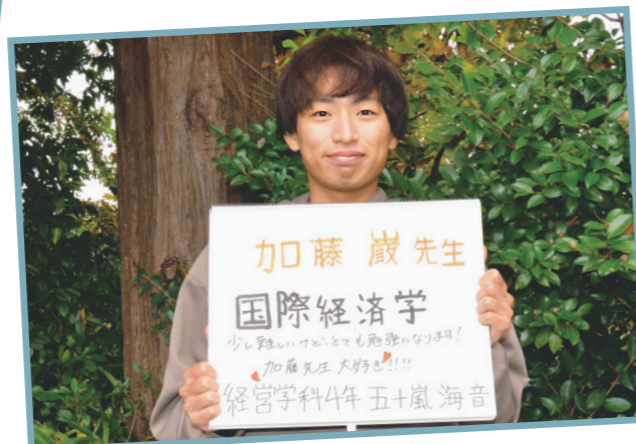 加藤 巌 先生
国際経済学
少し難しいけど、とても勉強になります!
加藤先生 大好き!!!!
経営学科4年 五十嵐 海音